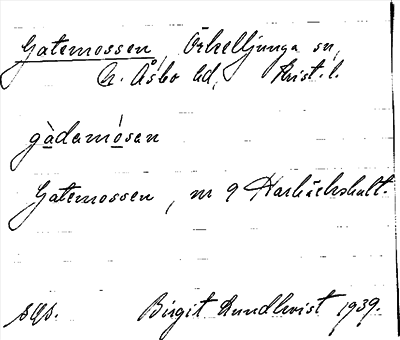 Gatemossen, Örkelljunga sn,
N. Åsbo hd, Krist. l.
gàdemósen
Gatemossen, nr 9 Harbäckshult.
sgs. Birgit Lundkvist 1939.